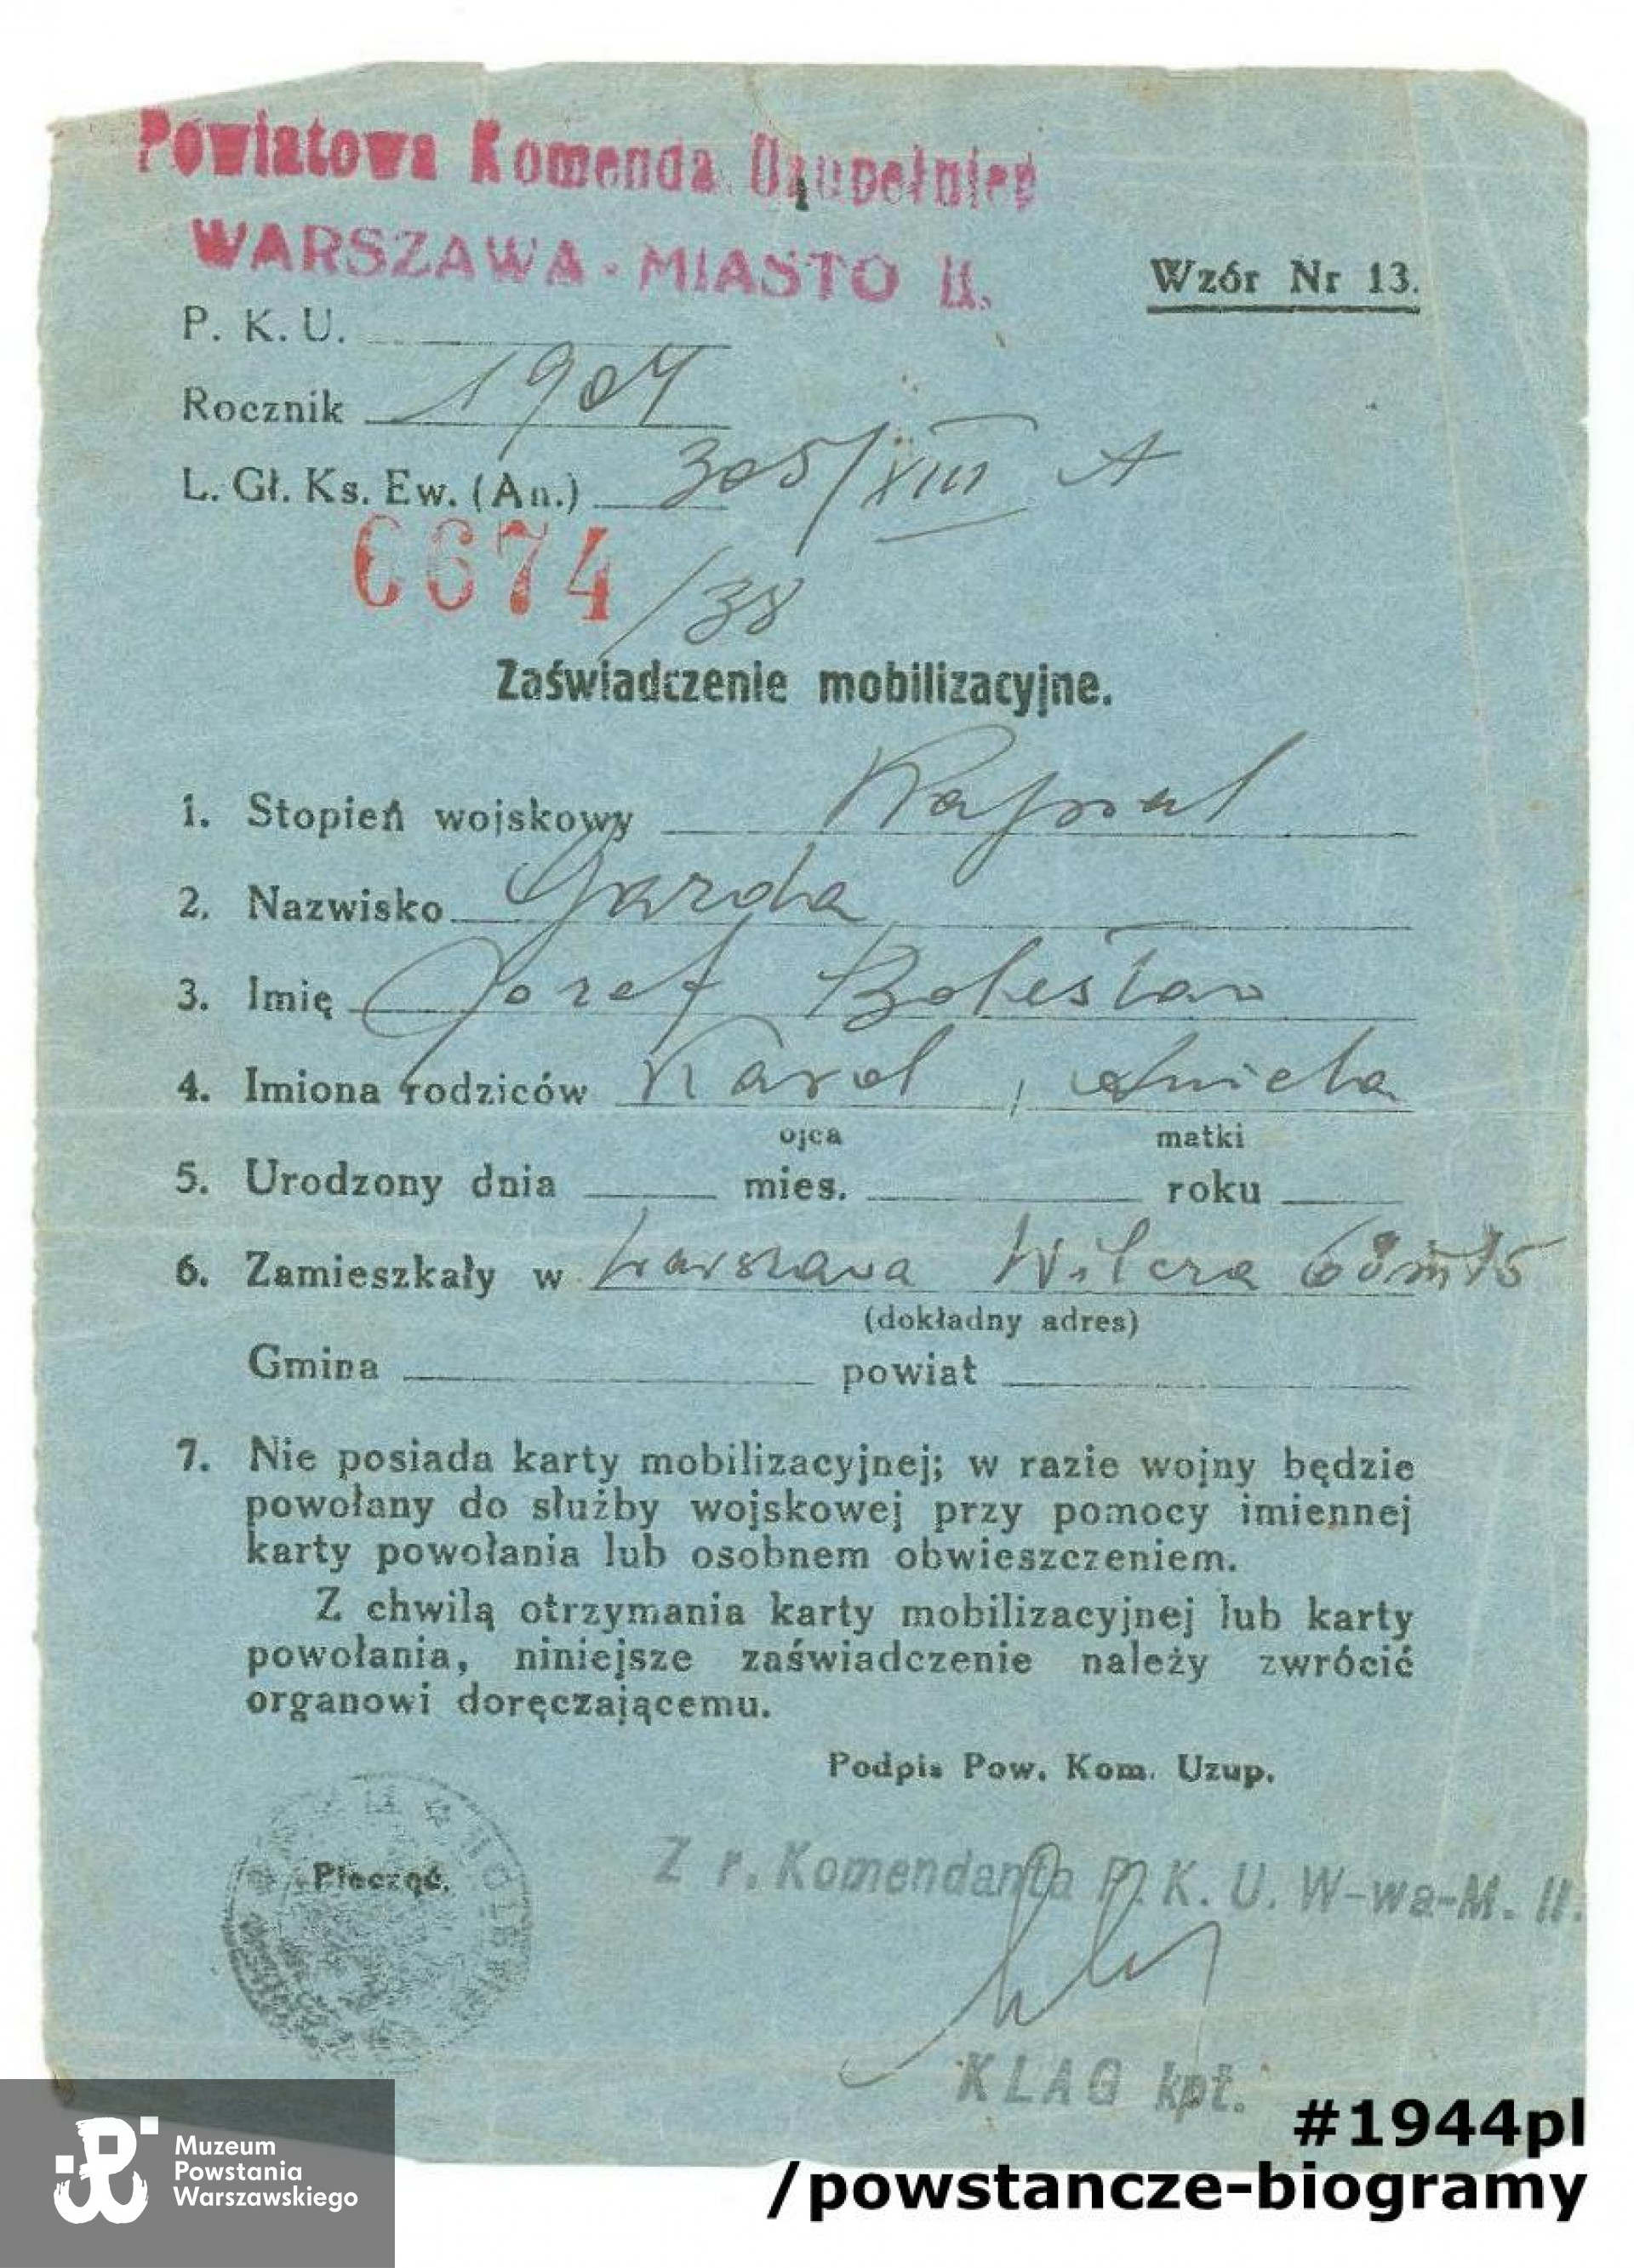 Powiatowa Komenda Uzupełnień
WARSZAWA-MIASTO II.
Wzór Nr 13.
P. K. U.
Rocznik 1904
L. Gł. Ks. Ew. (An.) 305/XIII A
6674/38
Zaświadczenie mobilizacyjne.
1. Stopień wojskowy Kapral
2. Nazwisko Garda
3. Imię Józef Bolesław
4. Imiona rodziców Karol, Aniela
ojca matki
5. Urodzony dnia mies. roku
6. Zamieszkały w Warszawa Wilcza m 15
(dokładny adres)
Gmina powiat
7. Nie posiada karty mobilizacyjnej; w razie wojny będzie
powołany do służby wojskowej przy pomocy imiennej
karty powołania lub osobnem obwieszczeniem.
Z chwilą otrzymania karty mobilizacyjnej lub karty
powołania, niniejsze zaświadczenie należy zwrócić
organowi doręczającemu.
Podpis Pow. Kom. Uzup.
Pieczęć.
Z r. Komendanta P. K. U. W-wa-M. II.
KLAG kpt.
#1944pl
/powstancze-biogramy
Muzeum
Powstania
Warszawskiego